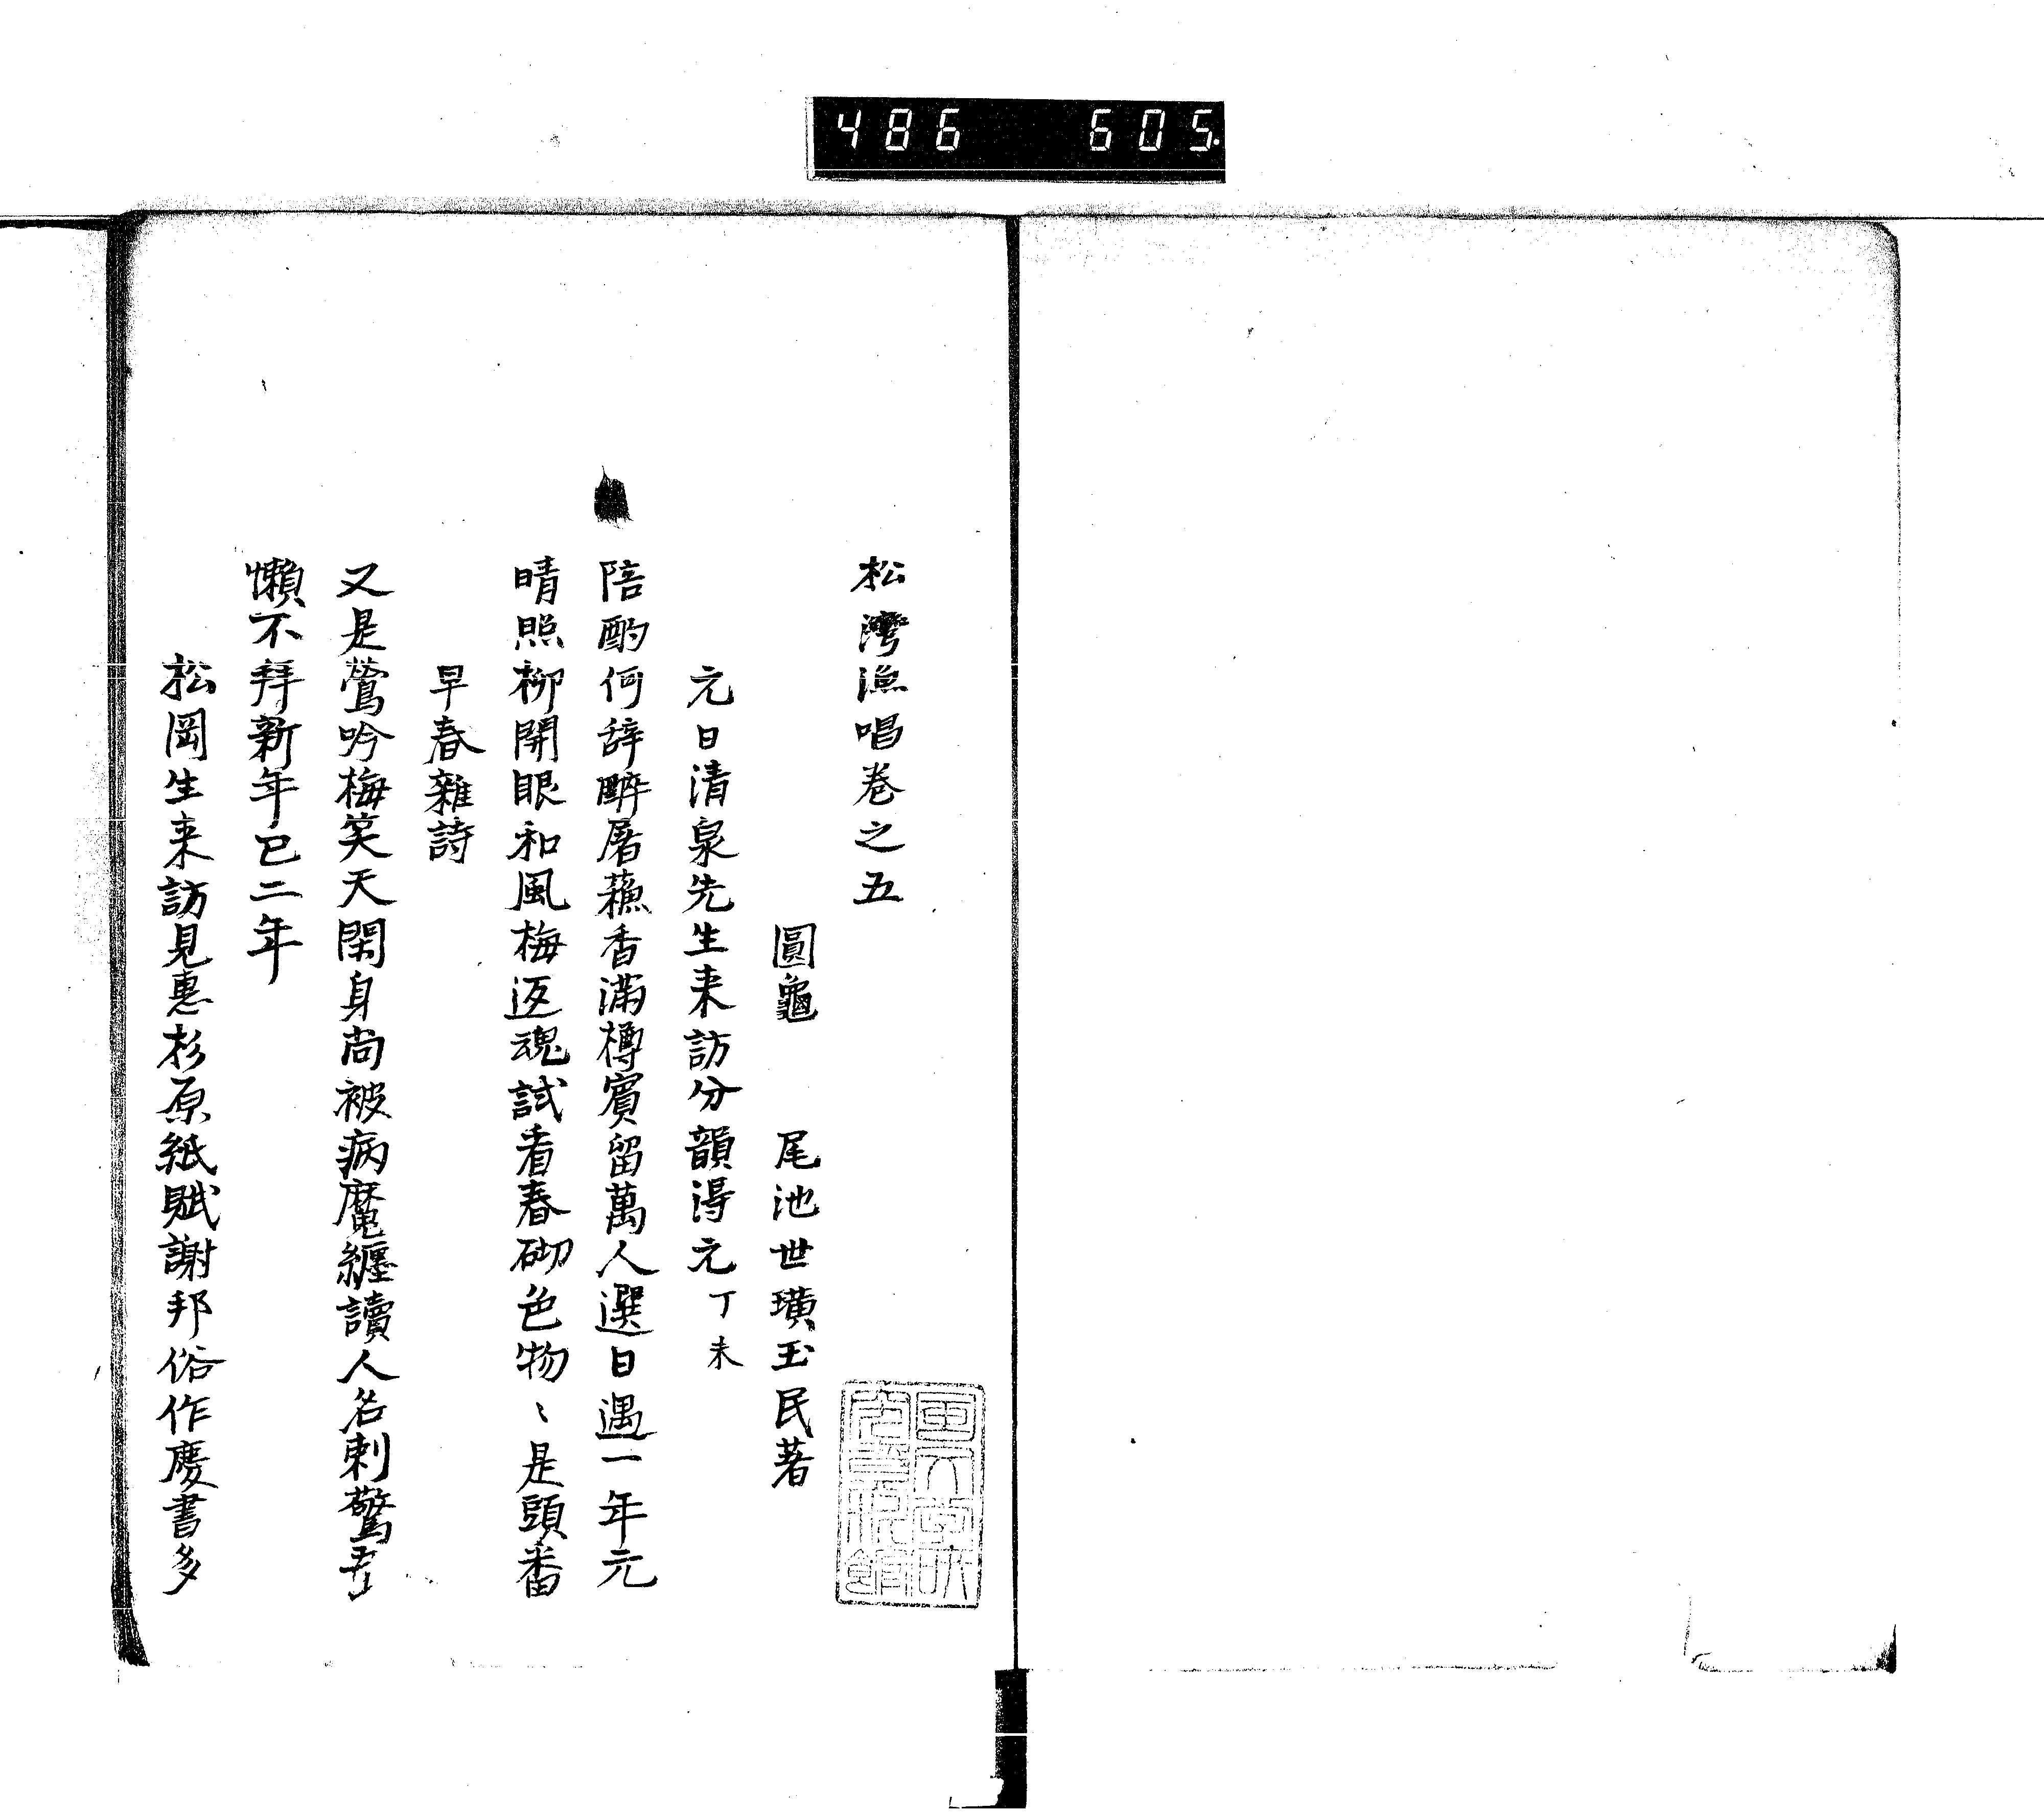 486 605
松灣漁唱卷之五
圓龜 尾池世璜玉民著
元日清泉先生来訪分韻得元 丁未
陪酌何辞酔屠蘓香滿樽賓留萬人選日遇一年元
晴照柳開眼和風梅返魂試看春砌色物〻是頭番
早春雜詩
又是鶯吟梅笑天閑身尚被病魔纏讀人名刺驚吾
懶不拜新年已二年
松岡生来訪見惠杉原紙賦謝邦俗作慶書多